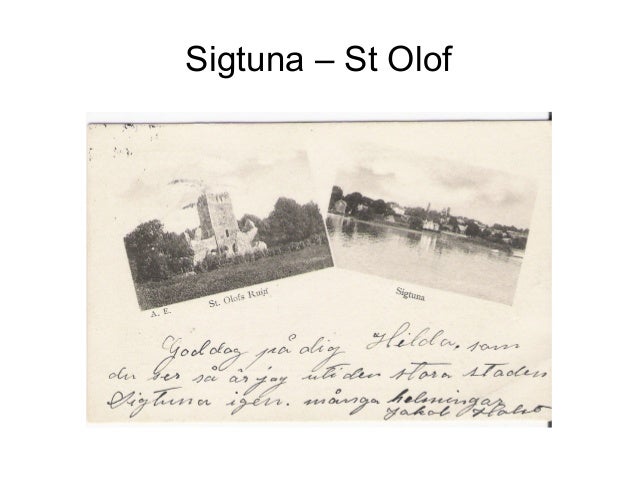 Sigtuna – St Olof
St. Olofs Ruig
Sigtuna
A. E.
God dag på dig Hilda, som
du ser så är jag uti den stora staden
Sigtuna igen. många helsningar
Jakob